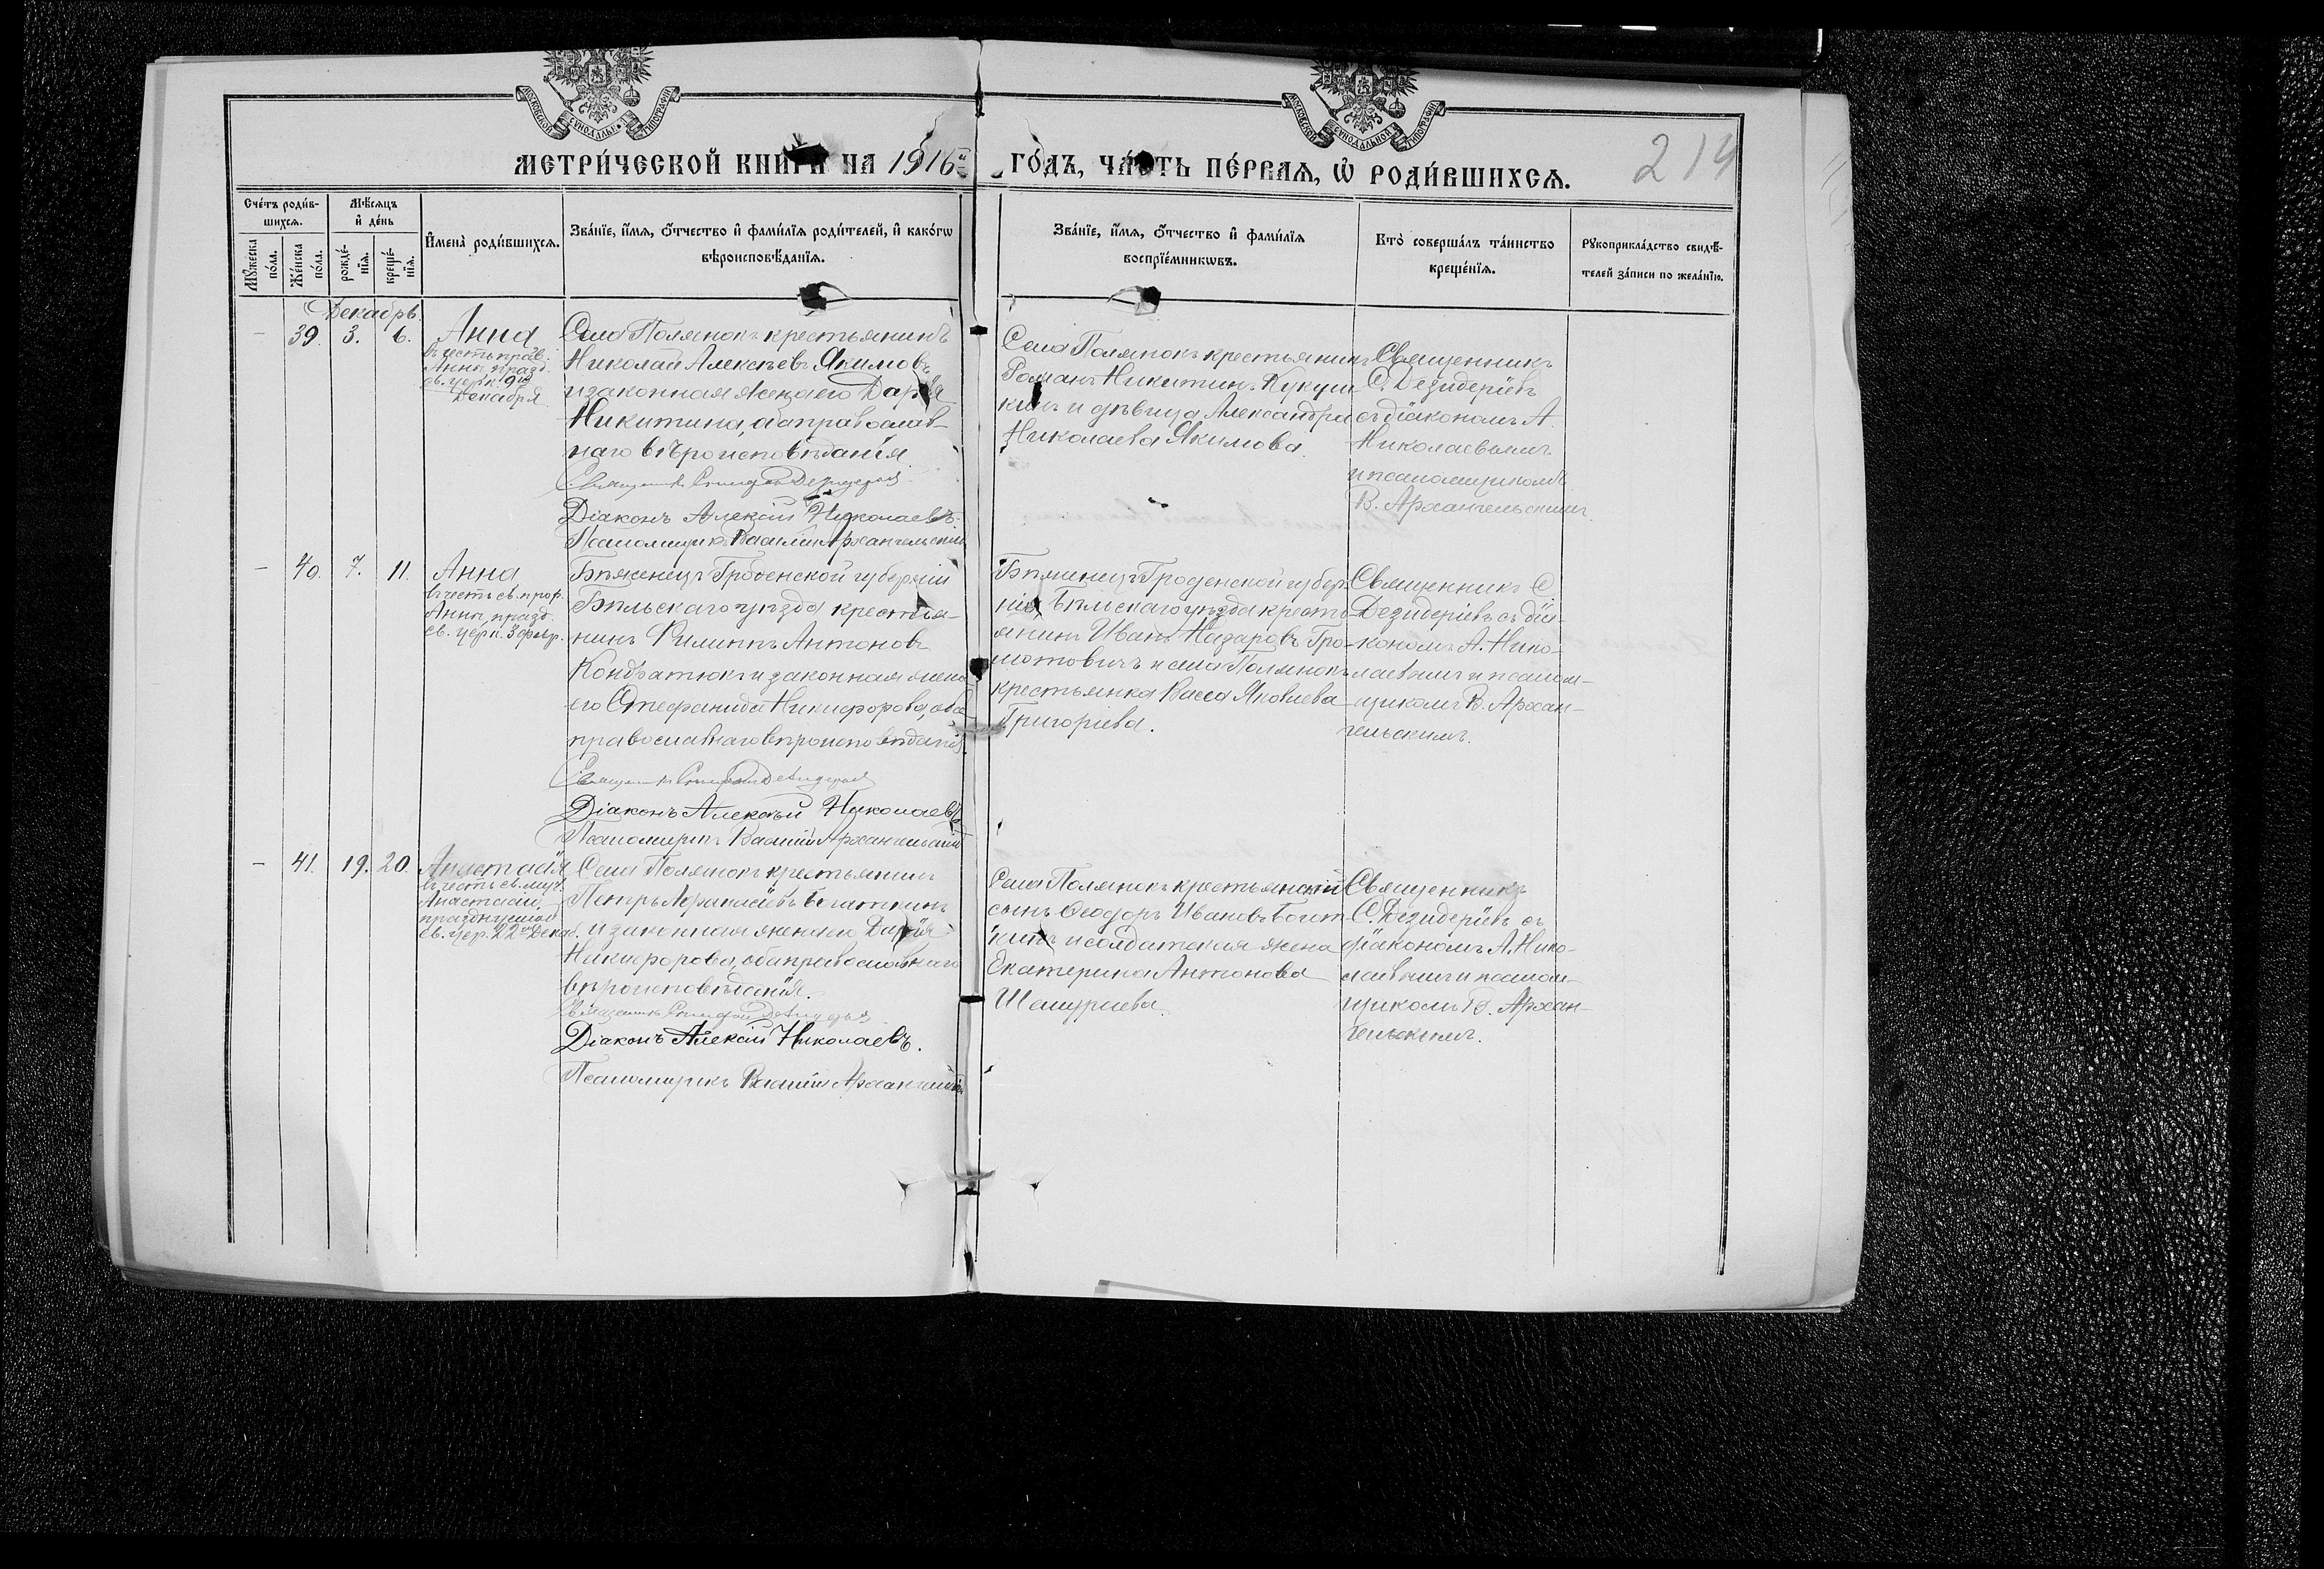 МОСКОВСКОЙ СѴНОДАЛЬНОЙ ТИПОГРАФІИ
МОСКОВСКОЙ СѴНОДАЛЬНОЙ ТИПОГРАФІИ
МЕТРИ́ЧЕСКОЙ КНИГИ НА 1916й ГО́ДЪ, ЧА́СТЬ ПЕ́РВАѦ, Ѡ҆ РОДИ́ВШИХСѦ.
214
Сче́тъ роди́в-
шихсѧ.
Мꙋ́жеска по́ла.
Же́нска по́ла.
Мѣ́сѧцъ
и҆ де́нь
рожде́-
нїѧ.
креще́-
нїѧ.
И҆мена̀ роди́вшихсѧ.
Зва́нїе, и҆́мѧ, ѻ҆́тчество и҆ фами́лїѧ роди́телей, и҆ како́гѡ
вѣроисповѣ́данїѧ.
Зва́нїе, и҆́мѧ, ѻ҆́тчество и҆ фами́лїѧ
воспрїе́мникѡвъ.
Кто̀ соверша́лъ та́инство
креще́нїѧ.
Рꙋкоприкла́дство свидѣ́-
телей за́писи по жела́нїю.
Декабрь.
- 39. 3. 6.
Анна
въ честь прав.
Анны, празд.
св. церк. 9го
Декабря
Села Полянокъ крестьянинъ
Николай Алексѣевъ Якимовъ
и законная жена его Дарія
Никитина, оба православ-
наго вѣроисповѣданія.
Діаконъ Алексій Николаевъ.
Псаломщикъ Василій Архангельскій
Села Полянокъ крестьянинъ
Романъ Никитинъ Кукуш-
кинъ и дѣвица Александра
Николаева Якимова.
Священникъ
С. Дезидеріевъ
съ діакономъ А.
Николаевымъ
и псаломщикомъ
В. Архангельскимъ.
- 40. 7. 11.
Анна
въ честь св. прор.
Анны, празд.
св. церк. 3 февр.
Бѣженецъ Гродненской губерніи
Бѣльскаго уѣзда крестья-
нинъ Филиппъ Антоновъ
Кондратюкъ и законная жена
его Стефанида Никифорова, оба
православнаго вѣроисповѣданія.
Діаконъ Алексѣй Николаевъ
Псаломщикъ Василій Архангельскій
Бѣженецъ Гродненской губер-
ніи Бѣльскаго уѣзда кресть-
янинъ Иванъ Назаровъ Гро-
мотовичъ и села Полянокъ
крестьянка Васса Яковлева
Григоріева.
Священникъ С.
Дезидеріевъ съ діа-
кономъ А. Нико-
лаевымъ и псалом-
щикомъ В. Архан-
гельскимъ.
- 41. 19. 20.
Анастасія
въ честь св. муч.
Анастасіи,
празднуемой
св. цер. 22го Декаб.
Села Полянокъ крестьянинъ
Петръ Аѳанасіевъ Богаткинъ
и законная жена его Дарія
Никифорова, оба православнаго
вѣроисповѣданія.
Діаконъ Алексій Николаевъ.
Псаломщикъ Василій Архангельскій
Села Полянокъ крестьянскій
сынъ Ѳеодоръ Ивановъ Богат-
кинъ и солдатская жена
Екатерина Антонова
Священникъ
С. Дезидеріевъ съ
діакономъ А. Нико-
лаевымъ и псалом-
щикомъ В. Архан-
гельскимъ.